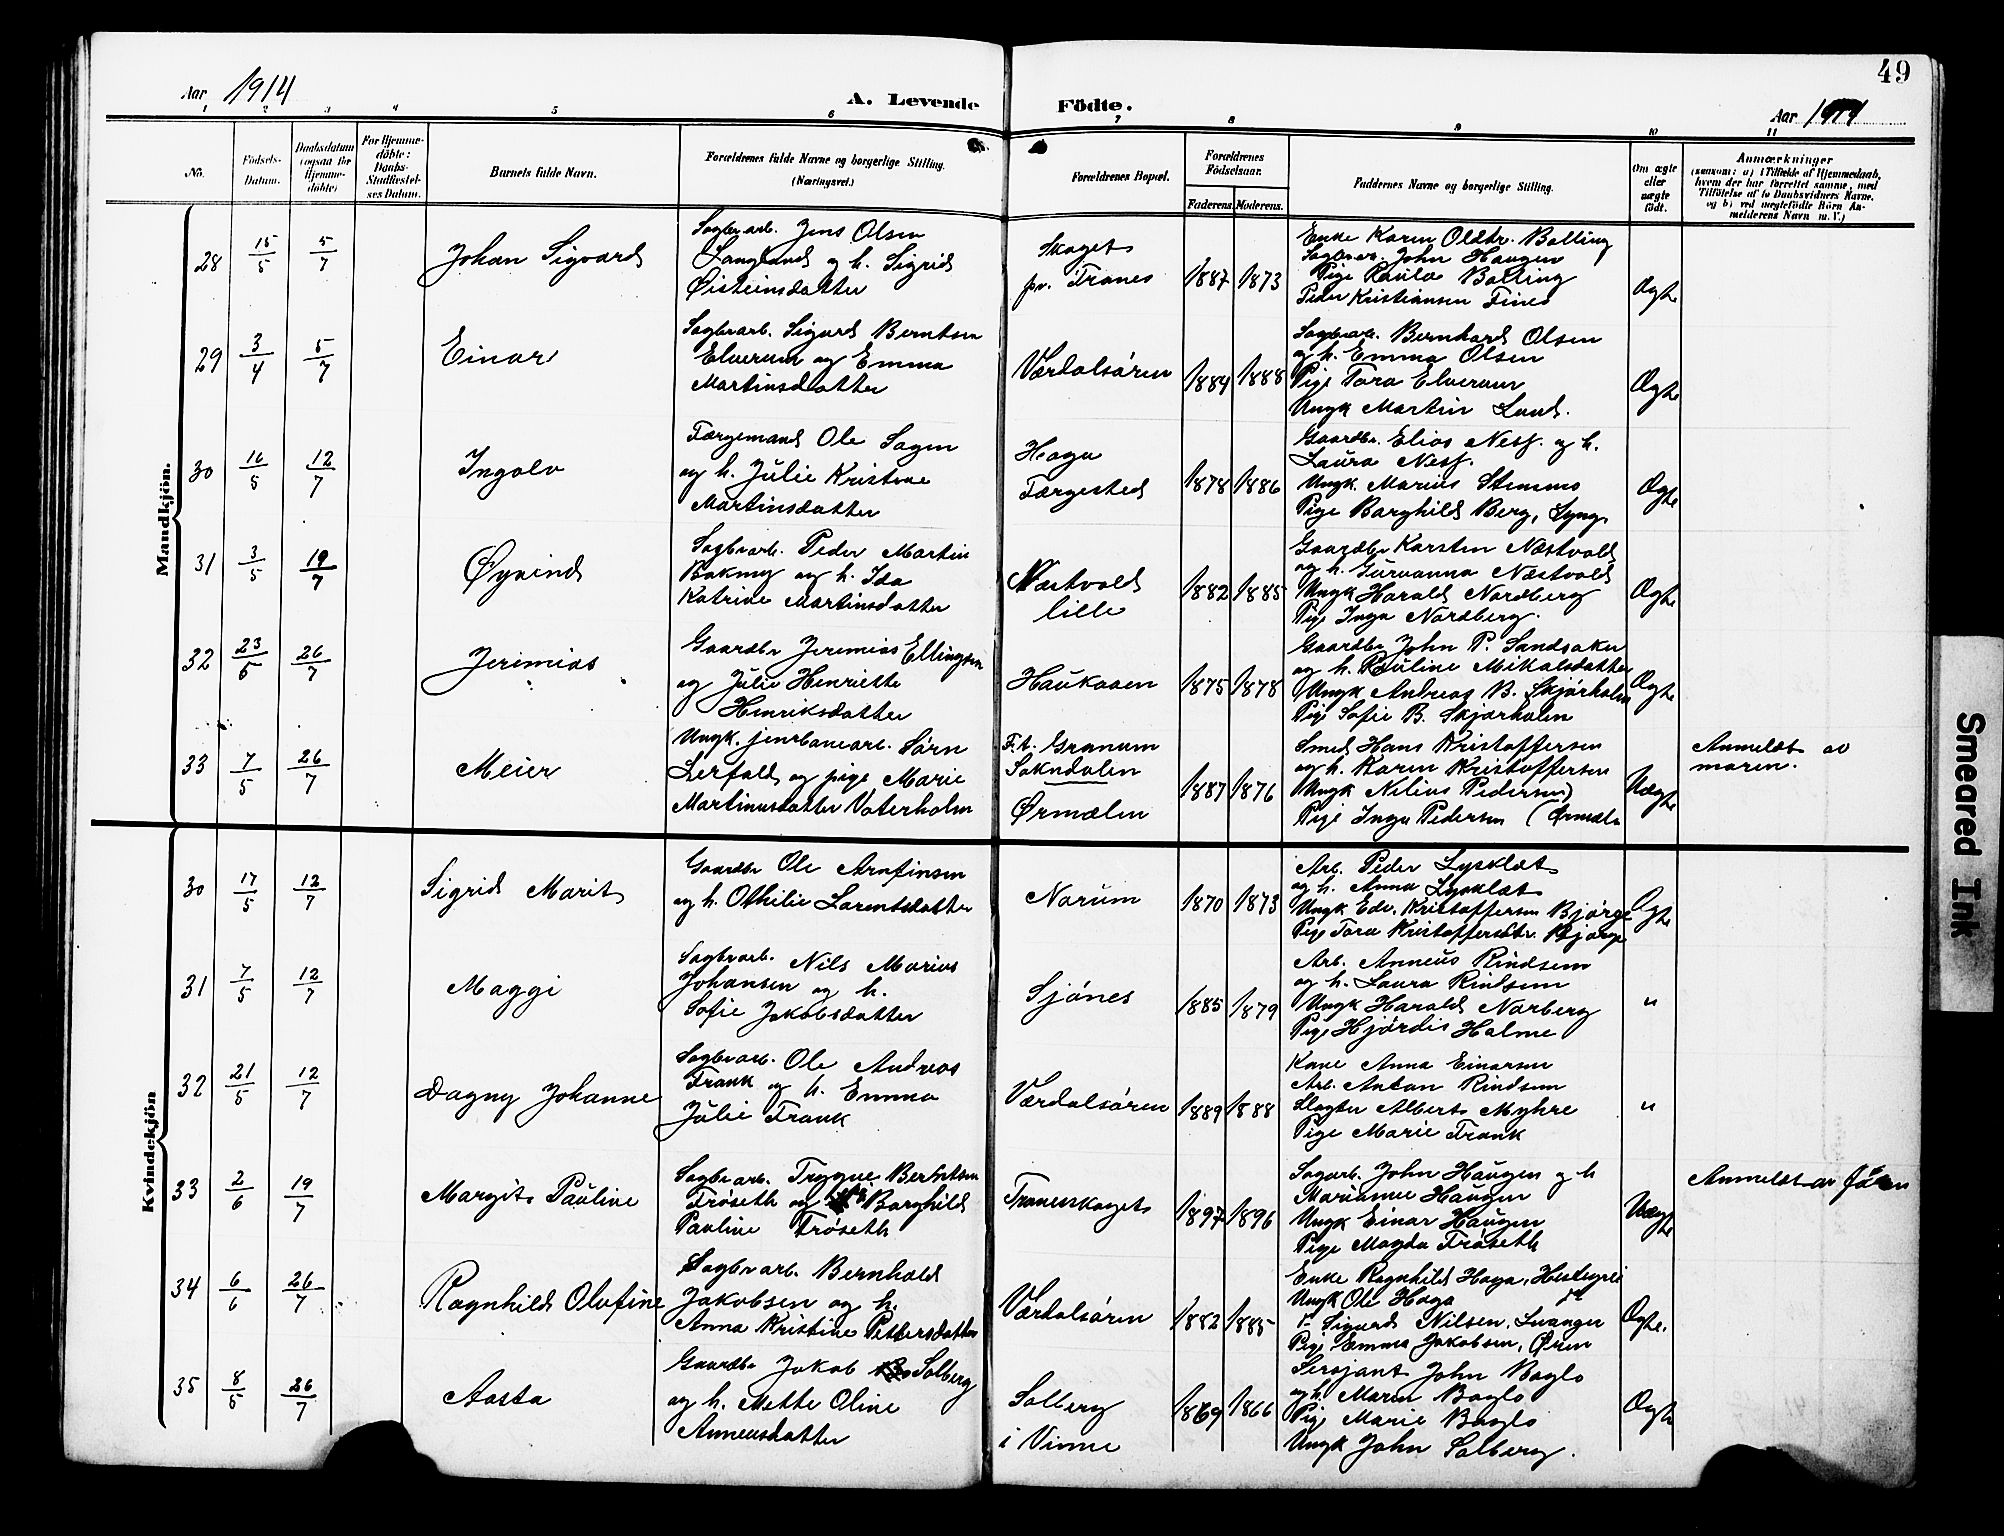 49
Aar 1914
A. Levende Födte.
Aar 1914
1 2 3 4 5 6 7 8 9 10 11
No.
Födsels-Datum.
Daabsdatum (ogsaa for Hjemmedöbte)
For Hjemmedöbte: Daabs-Stadfæstelses Datum.
Barnets fulde Navn.
Forældrenes fulde Navne og borgerlige Stilling. (Næringsvei.)
Forældrenes Bopæl.
Forældrenes Födselsaar.
Faderens. Moderens.
Faddernes Navne og borgerlige Stilling.
Om ægte eller uægte födt.
Anmærkninger
(saasom: a) i Tilfælde af Hjemmedaab, hvem der har forrettet samme, med Tilföielse af to Daabsvidners Navne, og b) ved uægtefödte Börn Anmelderens Navn m. V.)
Mandkjön.
28 15/5 5/7 Johan Sigvard
Sagbrarb. Jens Olsen
Langlands og h. Sigrid
Øisteinsdatter
Skaget
pr. Tranes
1887 1873
Enke Karen Oldtr. Balling
Sagbrar. John Haugen
Pige Paula Balling
Peder Kristiansen Tines
Ægte
29 3/4 5/7 Einar
Sagbrarb. Sigurd Berntsen
Elverum og Emma
Martinsdatter
Værdalsøren
1884 1888
Sagbrarb. Bernhard Olsen
og h. Emma Olsen
Pige Tora Elverum
Ungk Martin Lund.
Ægte
30 16/5 12/7 Ingolv
Færgemand Ole Sagen
og h. Julie Kristine
Martinsdatter
Haga
Færgested
1878 1886
Gaardbr. Elias Ness. og h.
Laura Ness.
Ungk. Marius Stemme
Pige Borghild Berg, Lyng.
Ægte
31 3/5 19/7 Øyvind
Sagbrarb. Peder Martin
Bakmy og h. Ida
Katrine Martinsdatter
Næstvold
lille
1882 1885
Gaardbr Karsten Næstvold
og h. Gurvanna Næstvold
Ungk Harald Nordberg
Pige Inga Nordberg.
Ægte
32 23/5 26/7 Jerimias
Gaardbr Jeremias Ellingsen
og Julie Henriette
Henriksdatter
Haukaaen
1875 1878
Gaardbr John P. Sandsaker
og h. Pauline Mikalsdatter
Ungk Andreas B. Skjørholm
Pige Sofie B. Skjørholm
Ægte
33 7/5 26/7 Meier
Ungk. jernbanearb. Sørn
Lerfald og pige Marie
Martinusdatter Vaterholm
F.t. Granum
Sokndalen
Ørmælen
1887 1876
Smed Hans Kristoffersen
og h. Karen Kristoffersen
Ungk Nilius Pedersen)
Pige Inga Pedersen (Ørmæln
Uægte
Anmeldt av
moren.
Kvindekjön
30 17/5 12/7 Sigrid Marit
Gaardbr Ole Arnfinsen
og h. Othilie Larentsdatter
Norum
1870 1873
Arb. Peder Lysklæt
og h. Anna Lysklæt
Ungk Edv. Kristoffersen Bjørge
Pige Tora Kristoffersdtr. Bjørge
Ægte
31 7/5 12/7 Maggi
Sagbrarb. Nils Marius
Johansen og h.
Sofie Jakobsdatter
Sjønes
1885 1879
Arb. Anneus Rindsem
og h. Laura Rindsem
Ungk Harald Norberg
Pige Hjørdis Holme
"
32 21/5 12/7 Dagny Johanne
Sagbrarb. Ole Andreas
Frank og h. Emma
Julie Frank
Værdalsøren
1889 1888
Kone Anna Einarsen
Arb. Anton Rindsem
Slagter Albert Myhre
Pige Marie Frank
"
33 2/6 19/7 Margit Pauline
Sagbrarb. Trygve Berntsen
Trøseth og Borghild
Pauline Trøseth
Tranesskaget
1897 1896
Sagarb. John Haugen og h
Marianne Haugen
Ungk Einar Haugen
Pige Magda Trøseth
Uægte
Anmeldt av
34 6/6 26/7 Ragnhild Olufine
Sagbrarb. Bernhold
Jakobsen og h.
Anna Kristine Pettersdatter
Værdalsøren
1882 1885
Enke Ragnhild Haga,
Ungk Ole Haga
" Sigurd Nilsen, Levanger
Pige Emma Jakobsen, Øren
Ægte.
35 8/5 26/7 Aasta
Gaardbr Jakob Solberg
og h. Mette Oline
Anneusdatter
Solberg
i Vinne
1869 1866
Sersjant John Baglo
og h. Maren Baglo
Pige Marie Baglo
Ungk John Solberg.
Ægte
Smeared Ink